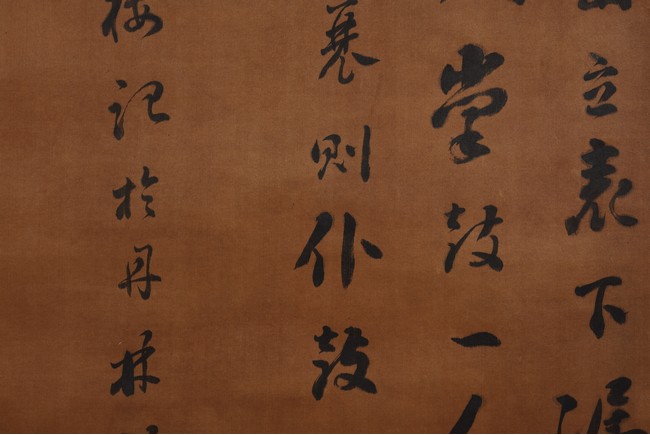 立表下漏
掌鼓一人
則仆鼓
記於丹林